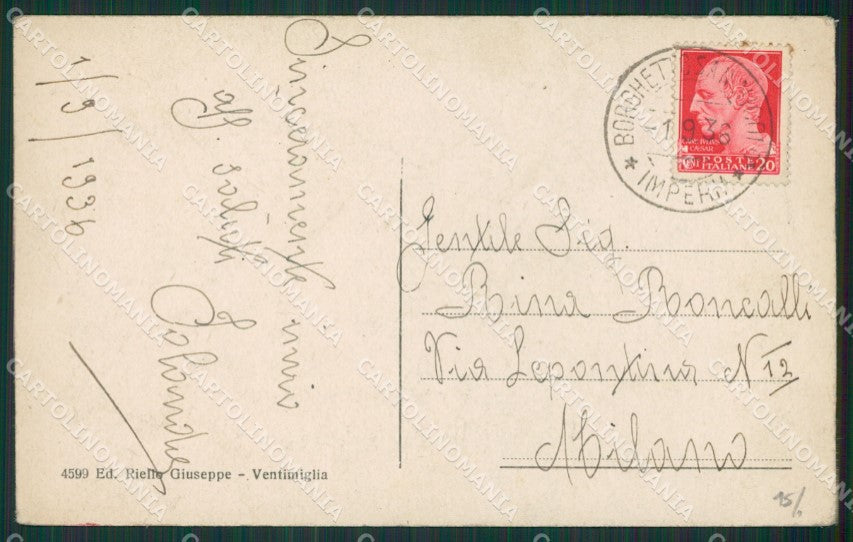 1/9/1936
aff. saluti
Jolanda
4599 Ed. Riello Giuseppe - Ventimiglia
BORGHETTO
-1.9.36
* IMPERIA *
CAIVS IVLIVS
CAESAR
POSTE
ITALIANE 20
Gentile Sig.
Rina Roncalli
Via Lepontina N 12
Milano
15/.
CARTOLINOMANIA